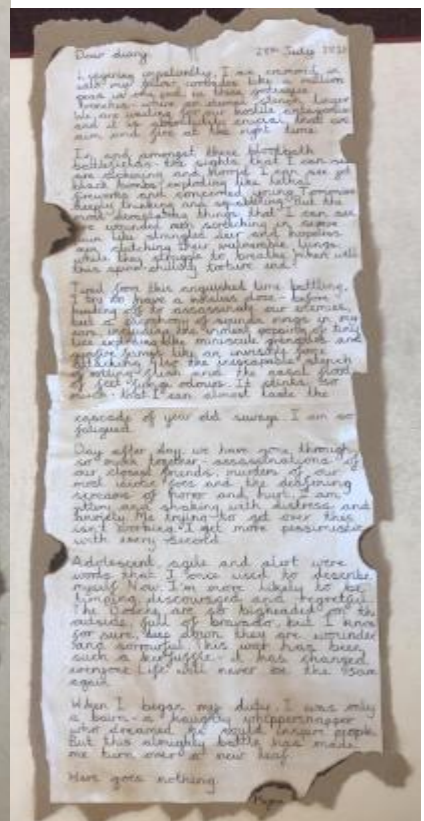 Dear diary, 28th July
Lingering impatiently, I am crammed in
with my fellow comrades like a million
peas in a pod in these grotesque
trenches - where an eternal stench lingers
We are waiting for our hostile antagonist
and it is absolutely crucial that we
aim and fire at the right time.
In and amongst these bloodbath
battlefields - the sights that I can see
are sickening and horrid. I can see jet
black bombs exploding like lethal
fireworks and concerned young Tommies
deeply trembling and squabbling. But the
most devastating things that I can see
are wounded men screeching in severe
pain like strangled deer and hopeless
men clutching their vulnerable lungs
while they struggle to breathe. When will
this spine-chilling torture end?
Tired from this anguished time battling,
I try to have a noiseless doze - before
heading off to assassinate our enemies,
but a symphony of sounds rings in my
ears including the violent popping of tiny
lice exploding like miniscule grenades and
attacking
of rotting flesh and the nasal flood
of feet fungi odours. It stinks so
much that I can almost taste the
cascade of year old sewage. I am so
fatigued.
Day after day, we have gone through
so much together - assassinations of
our closest friends, murders of our
most idiotic foes and the deafening
screams of horror and hurt. I am
and shaking with distress and
anxiety. Me trying to get over this
isn't working - I get more pessimistic
with every second.
Adolescent, agile and alert were
words that I once used to describe
myself. Now I'm more likely to be
limping, discouraged and regretful.
The are so bigheaded on the
outside, full of bravado, but I know
for sure, deep down they are wounded
and sorrowful. This war has been
such a kerfuffle - it has changed
everyone. Life will never be the same
again.
When I began my duty, I was only
a bairn - a haughty whippersnapper
who dreamed he could injure people.
But this almighty battle has made
me turn over a new leaf.
Here goes nothing.